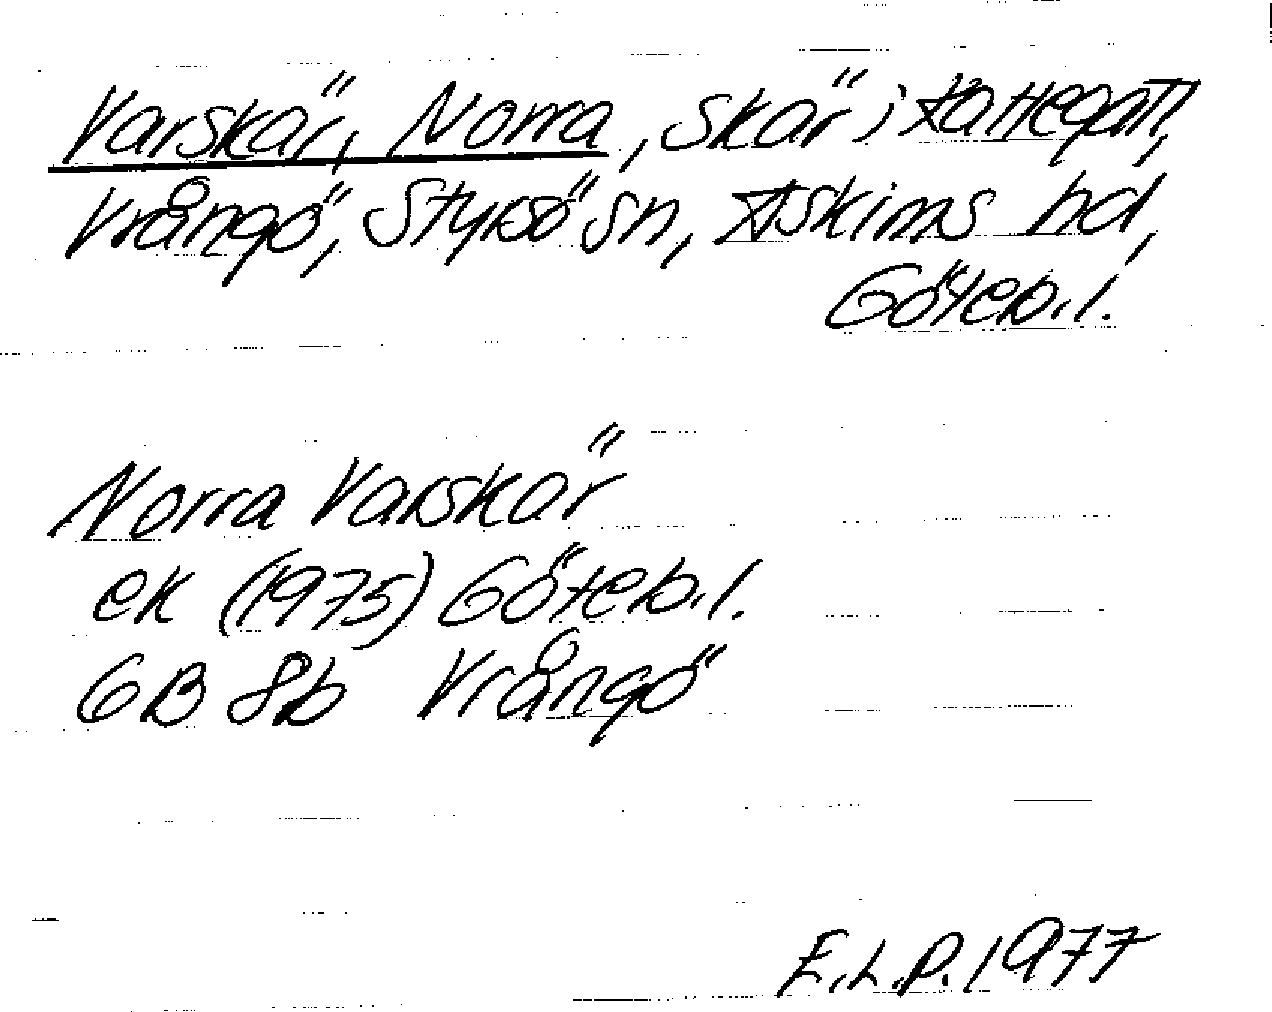 Varskär, Norra, skär i Kattegatt,
Vrångö, Styrsö sn, Askims hd,
Göteb.l.
Norra Varskär
ek (1975) Göteb.l.
GB 8b Vrångö
E.L.P. 1977